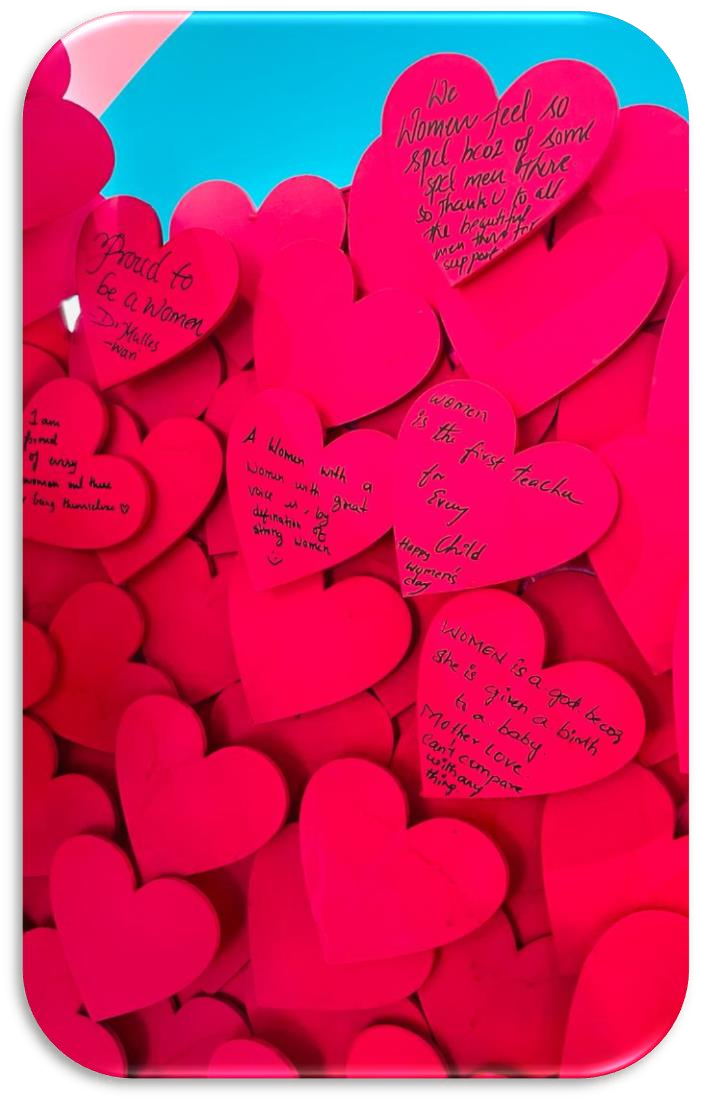 We
Women feel so
spcl bcoz of some
spcl men there
so Thank U to all
the beautiful
men there for
support
Proud to
be a Women
- Dr. Malles
-wari
I am
proud
of every
women out there
being themselves ♡
A Women with a
Women with great
voice is, by
defination of
strong women
women
is the first teacher
for
Every
Child
Happy
Women's
day
WOMEN is a god becoz
she is given a birth
to a baby.
Mother Love
can't compare
with any
thing.